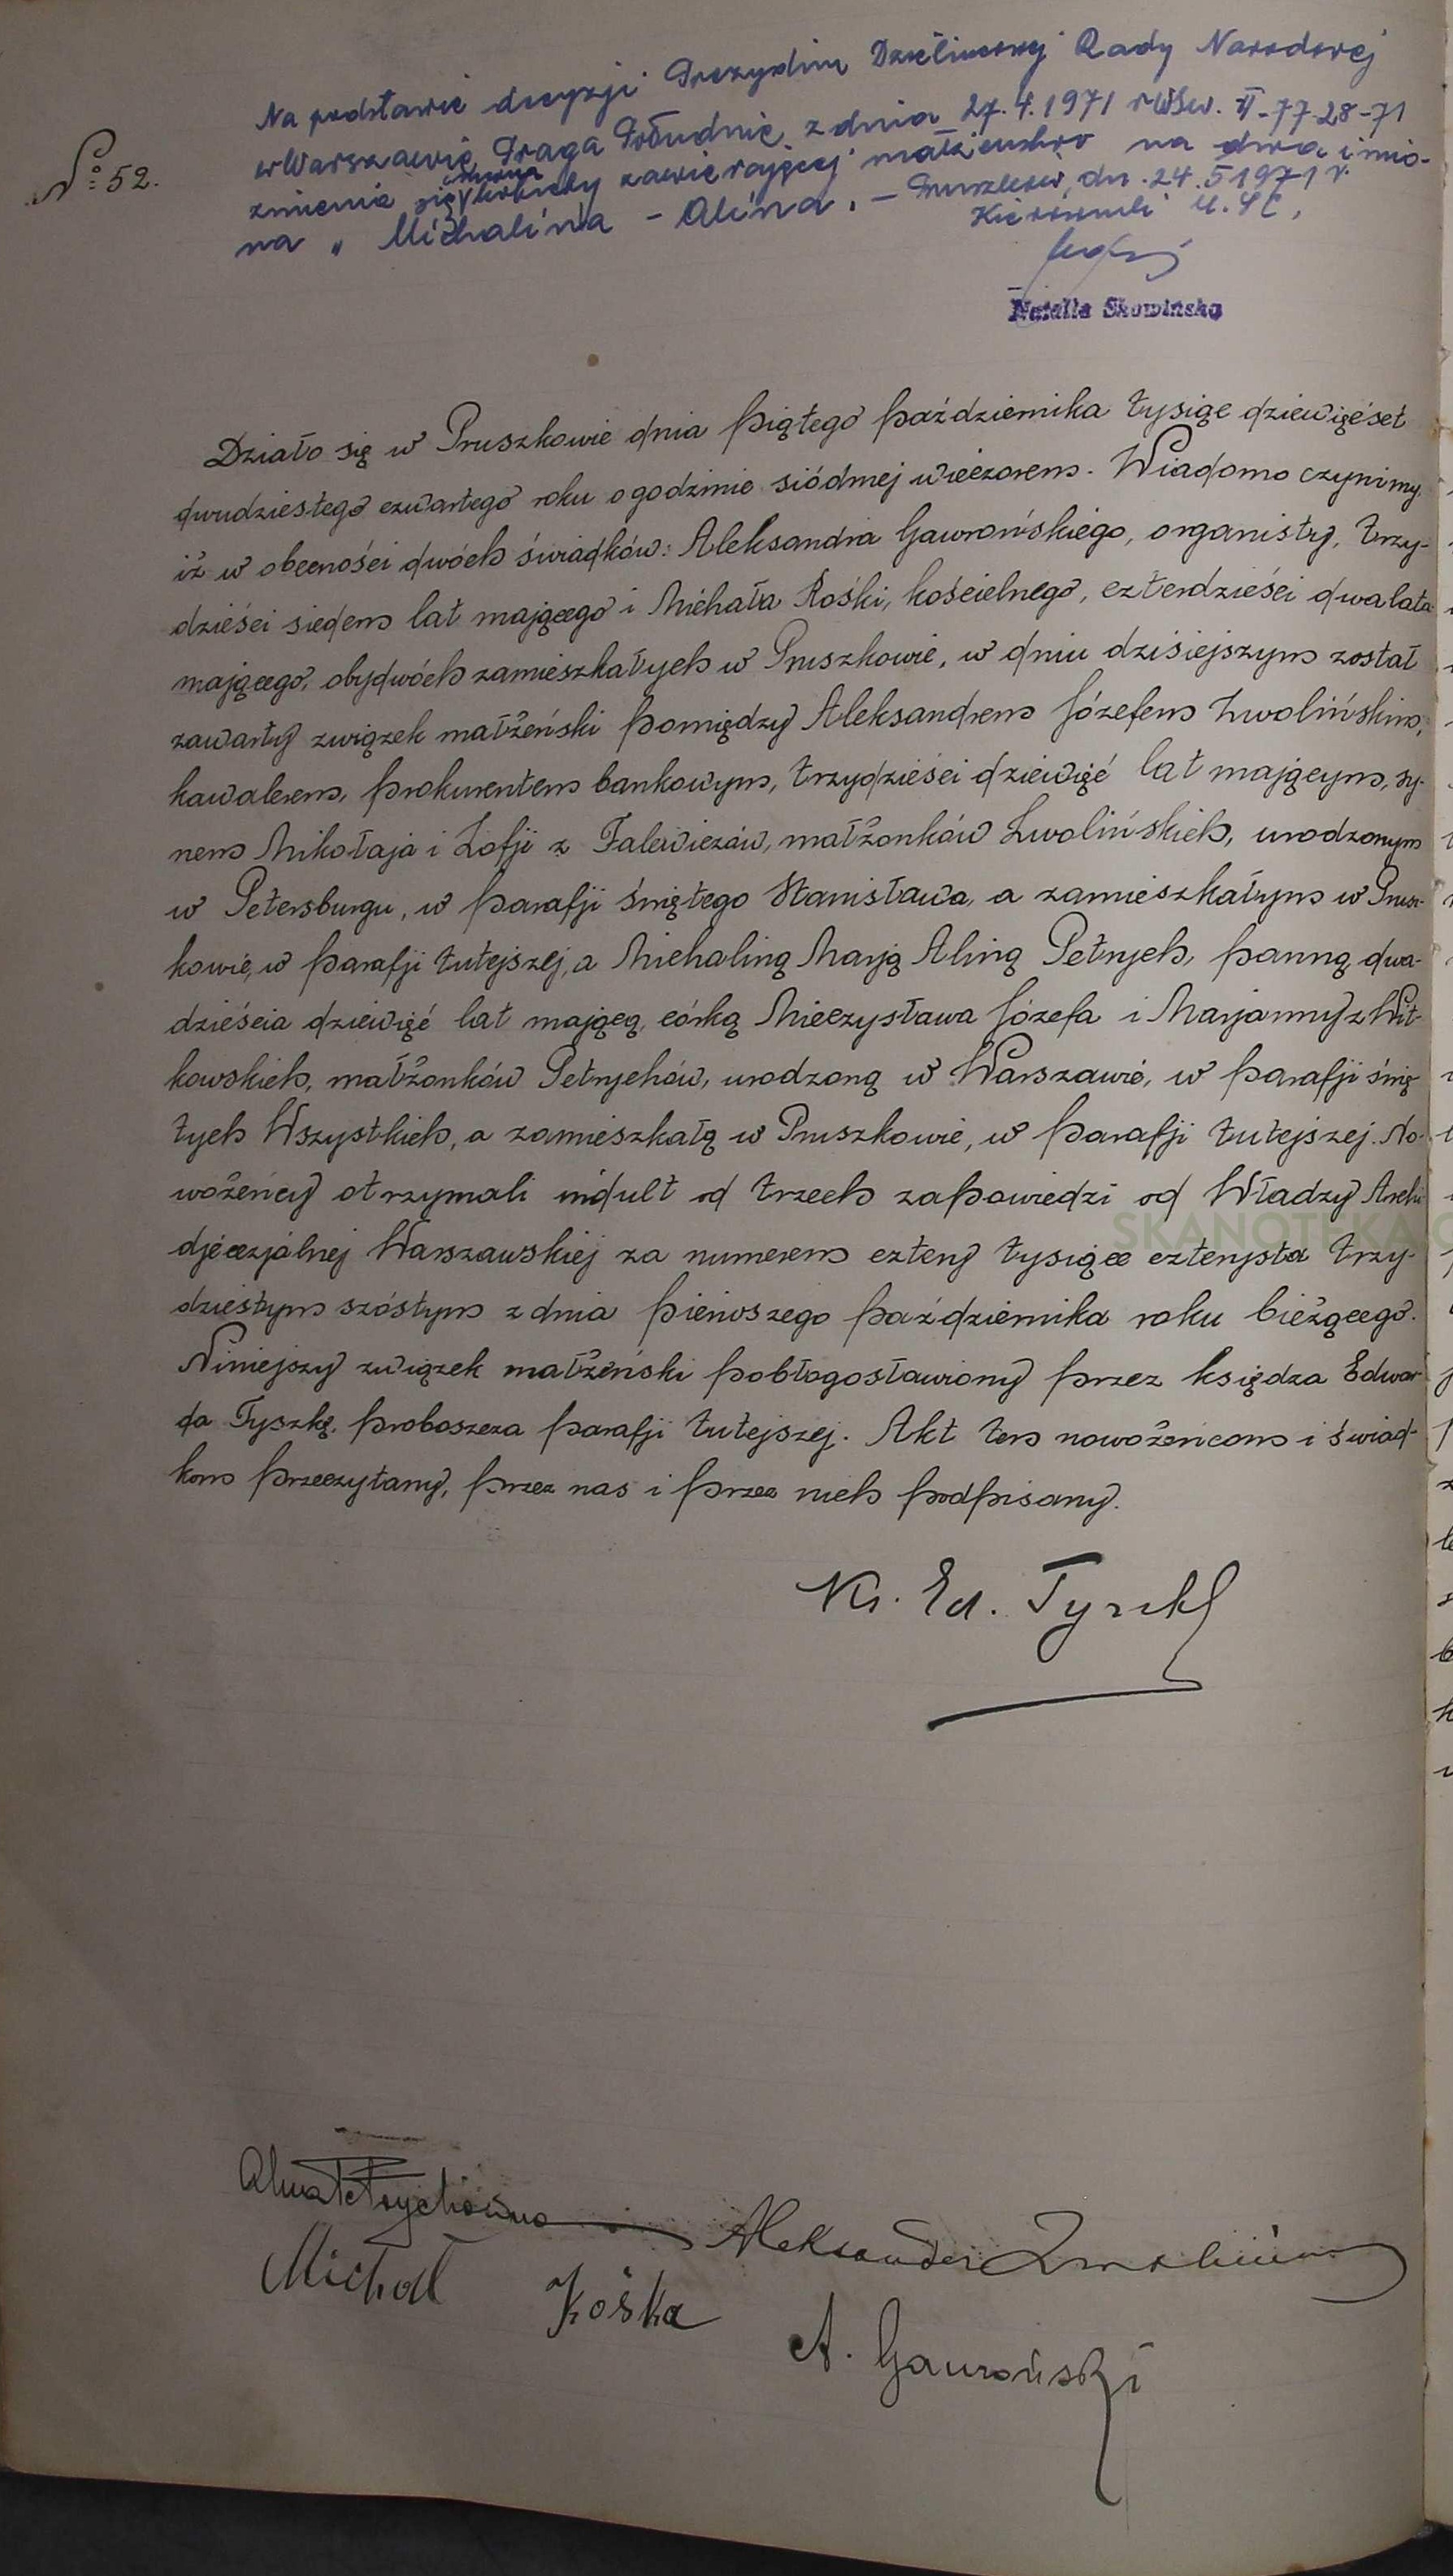 Na podstawie decyzji Prezydium Dzielnicowej Rady Narodowej
w Warszawie Praga Południe z dnia 27.4.1971 r WSw. II-77-28-71
zmienia się imiona kobiety zawierającej małżeństwo na dwa imio-
na „ Michalina - Alina. - Pruszków, dn. 24.5 1971 r.
Kierownik U.S.C.
Natalia Skowińska
№ 52.
Działo się w Pruszkowie dnia piątego października tysiąc dziewięćset
dwudziestego czwartego roku o godzinie siódmej wieczorem. Wiadomo czynimy,
iż w obecności dwóch świadków: Aleksandra Gawrońskiego, organisty, trzy-
dzieści siedem lat mającego i Michała Kośki, kościelnego, czterdzieści dwa lata
mającego, obydwóch zamieszkałych w Pruszkowie, w dniu dzisiejszym został
zawarty związek małżeński pomiędzy Aleksandrem Józefem Zwolińskim,
kawalerem, prokurentem bankowym, trzydzieści dziewięć lat mającym, sy-
nem Mikołaja i Zofji z Falewiczów, małżonków Zwolińskich, urodzonym
w Petersburgu, w parafji świętego Stanisława, a zamieszkałym w Prusz-
kowie, w parafji tutejszej, a Michaliną Marją Aliną Petrych, panną, dwa-
dzieścia dziewięć lat mającą, córką Mieczysława Józefa i Marjanny z Wit-
kowskich, małżonków Petrychów, urodzoną w Warszawie, w parafji świę
tych Wszystkich, a zamieszkałą w Pruszkowie, w parafji tutejszej. No-
wożeńcy otrzymali indult od trzech zapowiedzi od Władzy Archi
djecezjalnej Warszawskiej za numerem cztery tysiące czterysta trzy-
dziestym szóstym z dnia pierwszego października roku bieżącego.
Niniejszy związek małżeński pobłogosławiony przez księdza Edwar
da Tyszkę, proboszcza parafji tutejszej. Akt ten nowożeńcom i świad-
kom przeczytany, przez nas i przez nich podpisany.
Ks. Ed. Tyszka
Alina Petrychówna
Aleksander Zwoliński
Michał Kośka
A. Gawroński
SKANOTEKA